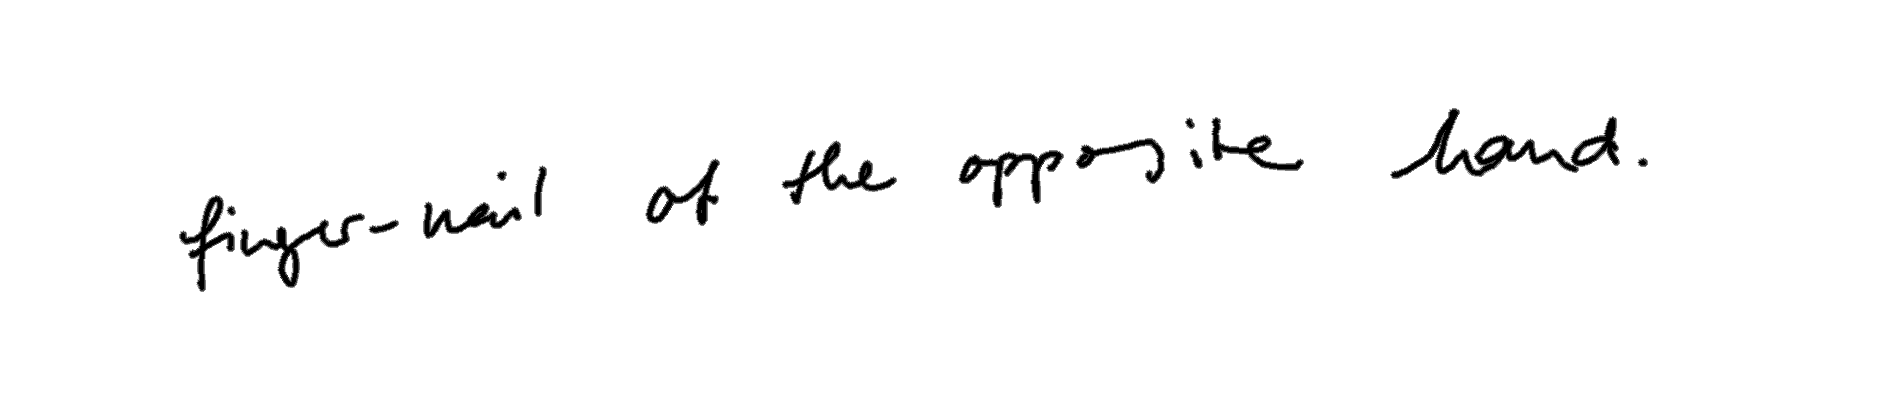 finger-nail of the opposite hand.